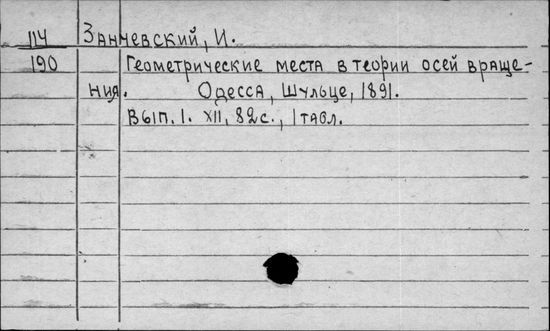 114 Занчевский, И.
190 Геометрические места в теории осей враще-
ния. Одесса, Шульце, 1891.
Вып. 1. XII, 82 с., 1 табл.